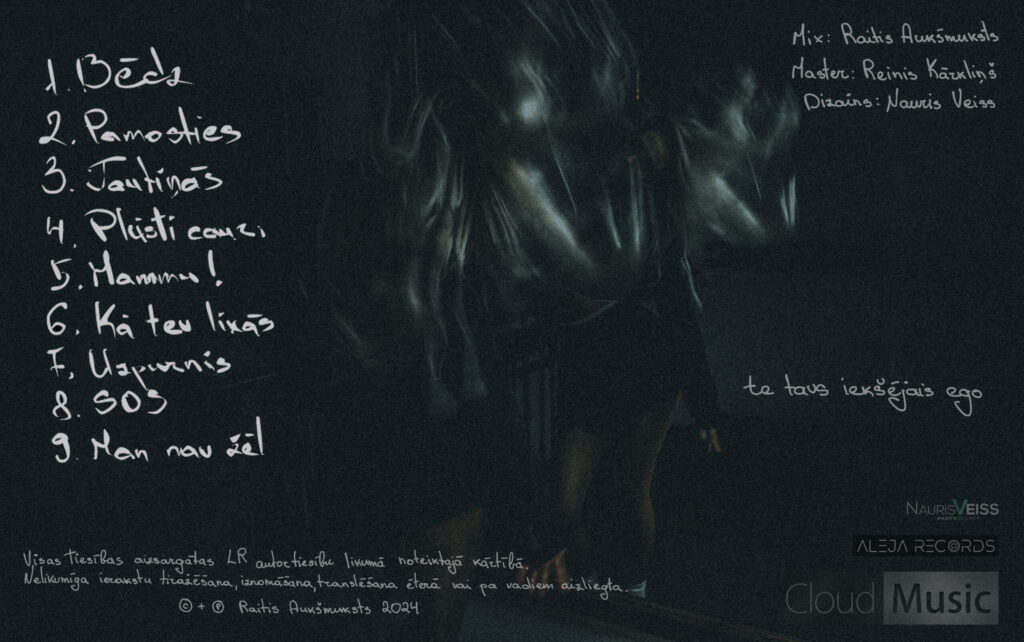 1. Bēdz
2. Pamosties
3. Jautiņās
4. Plūsti cauri
5. Mammu!
6. Kā tev likās
7. Uzpurnis
8. SOS
9. Man nav žēl
Mix: Raitis Aukšmuksts
Master: Reinis Kārkliņš
Dizains: Nauris Veiss
te tavs iekšējais ego
NAURISVEISS
PHOTOGRAPHY
ALEJA RECORDS
Cloud Music
Visas tiesības aizsargātas LR autortiesību likumā noteiktajā kārtībā.
Nelikumīga ierakstu tiražēšana, iznomāšana, translēšana ēterā vai pa vadiem aizliegta.
© + ℗ Raitis Aukšmuksts 2024